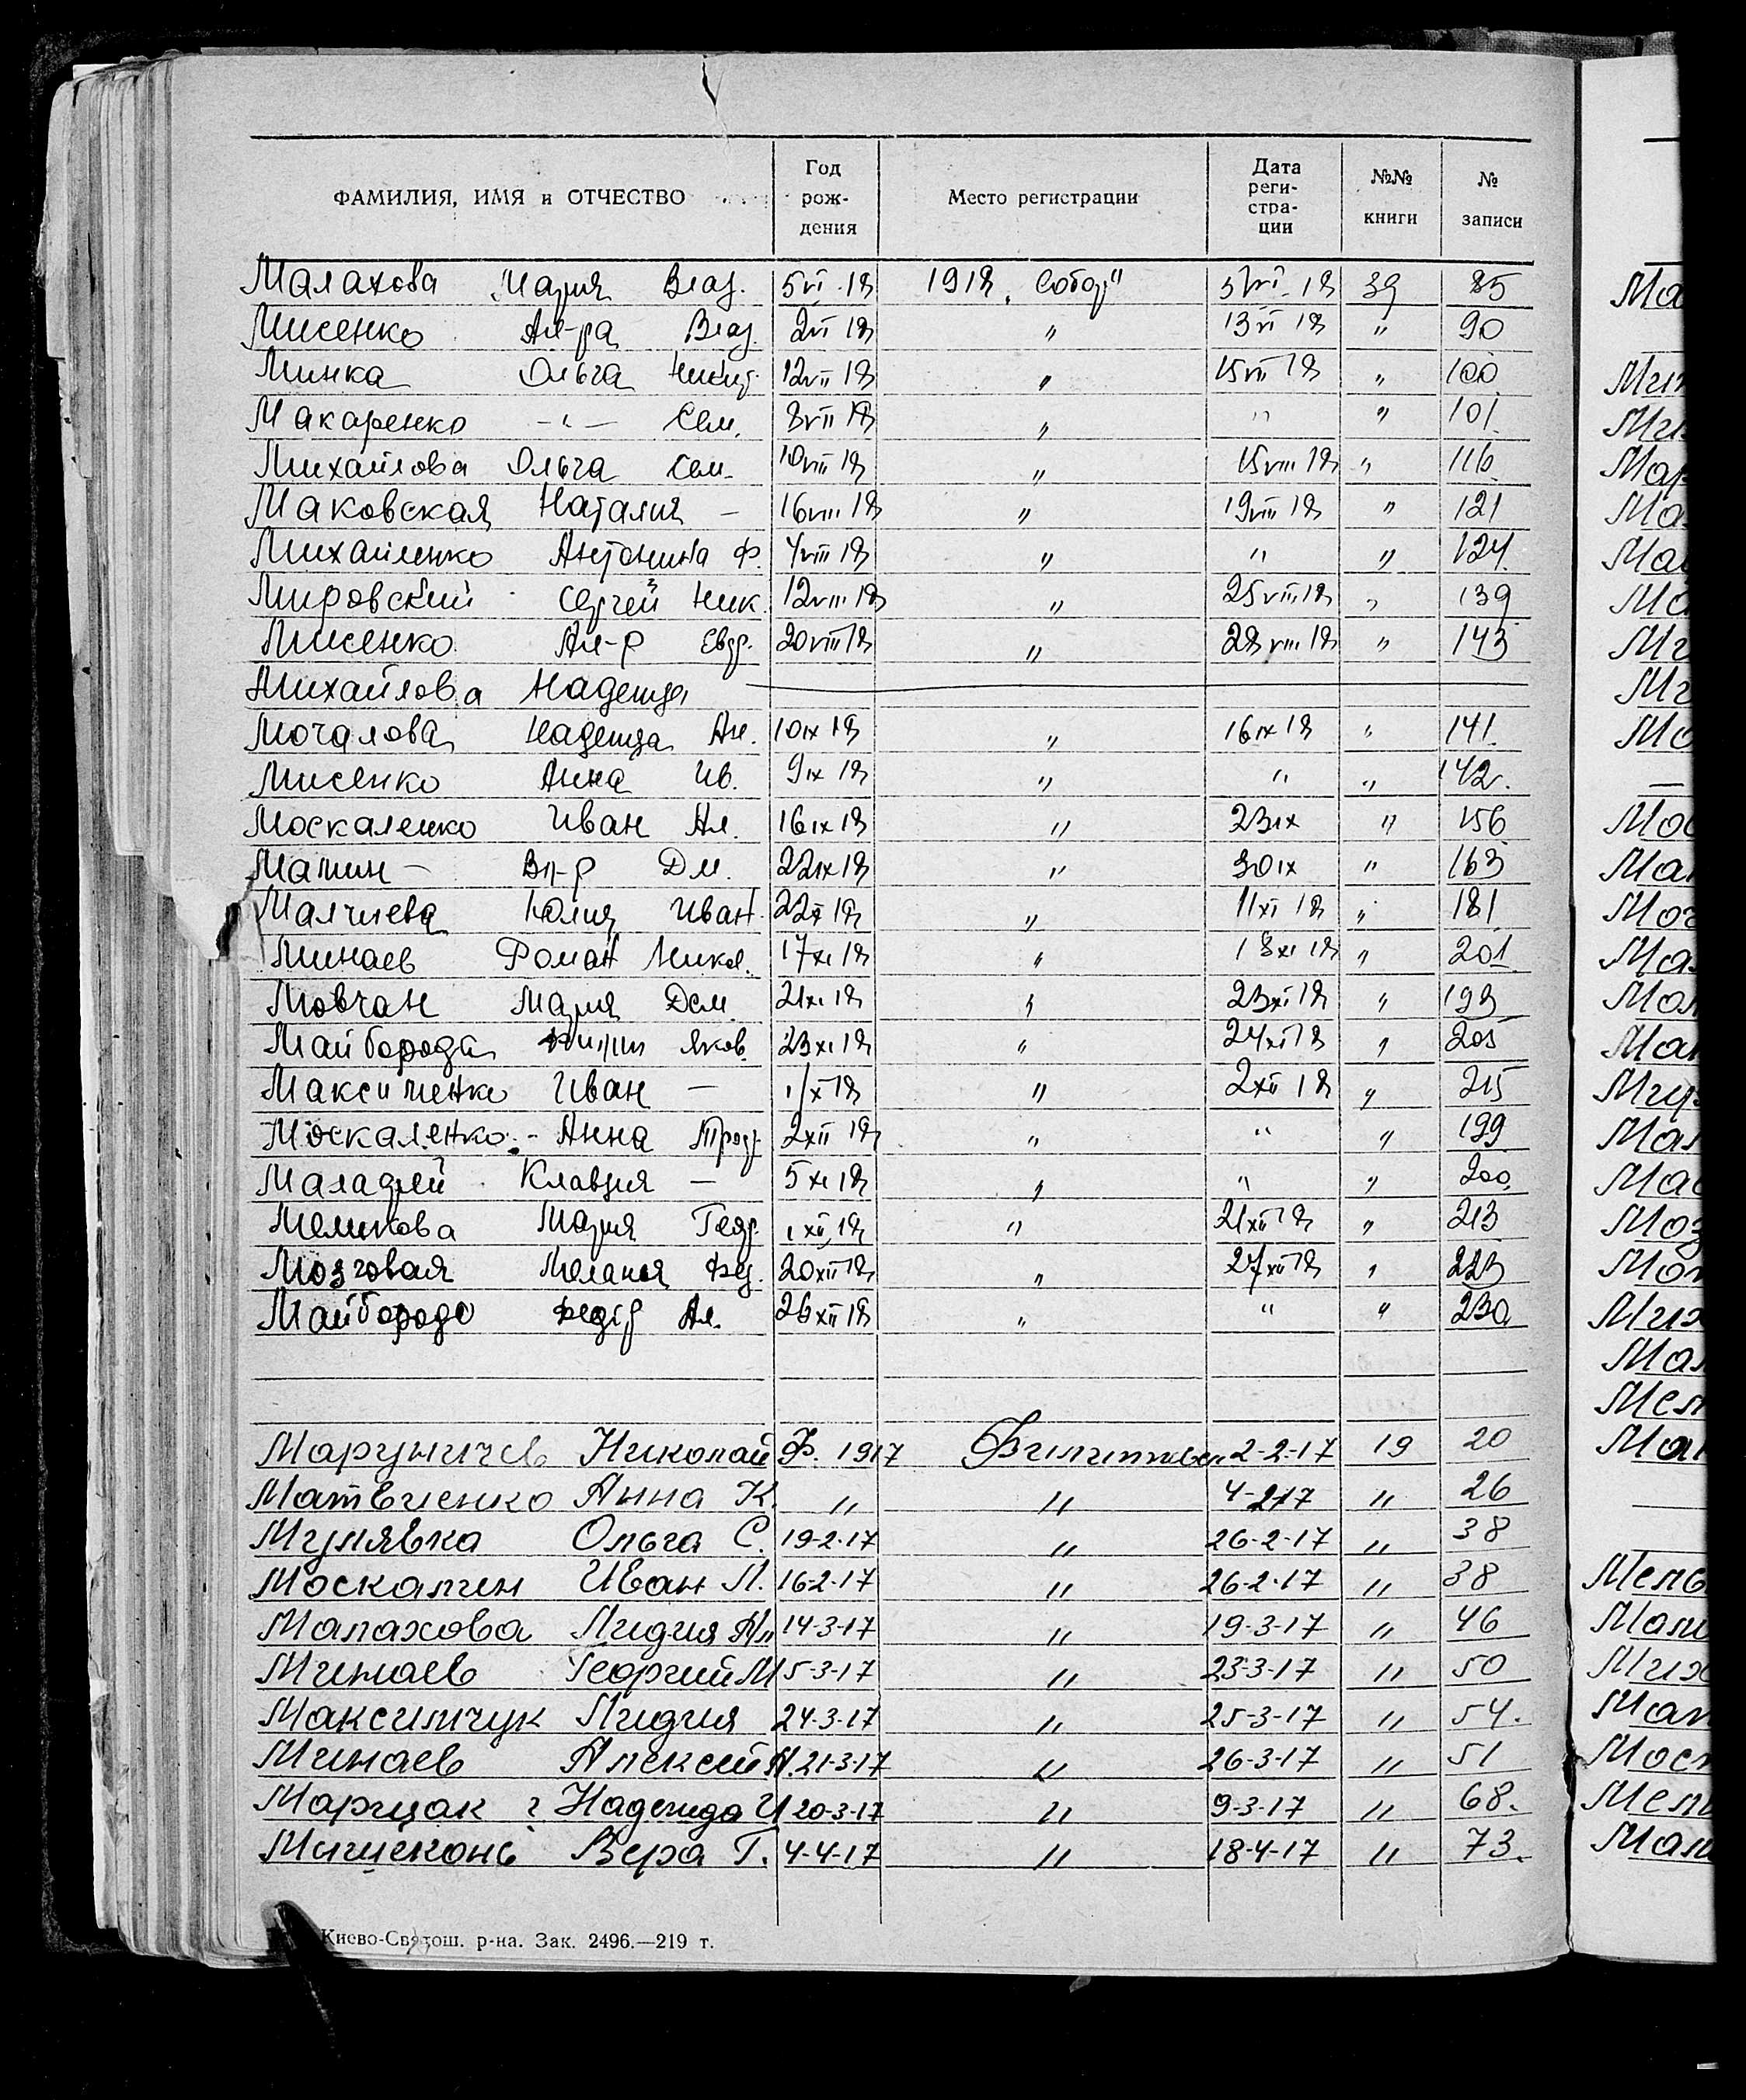 ФАМИЛИЯ, ИМЯ и ОТЧЕСТВО Год рож- дения Место регистрации Дата реги- стра- ции №№ книги № записи
Малахова Мария Влад. 5 VI 18 1918 „Собор" 5 VI 18 39 85
Мисенко Ал-ра Влад. 2 VI 18 " 13 VI 18 " 90
Минка Ольга Никит. 12 VII 18 " 15 VII 18 " 100
Макаренко -"- Сем. 8 VII 18 " " " 101
Михайлова Ольга Сем. 10 VIII 18 " 15 VIII 18 " 116
Маковская Наталия - 16 VIII 18 " 19 VIII 18 " 121
Михайленко Антонина Ф. 4 VIII 18 " " " 124
Мировский Сергей Ник. 12 VIII 18 " 25 VIII 18 " 139
Мисенко Ал-р Евдр. 20 VIII 18 " 28 VIII 18 " 143
Михайлова Надежда
Мочалова Надежда Ал. 10 IX 18 " 16 IX 18 " 141
Мисенко Анна Ив. 9 IX 18 " " " 142
Москаленко Иван Ал. 16 IX 18 " 23 IX " 156
Вл-р Дм. 22 IX 18 " 30 IX " 163
Юлия Иван. 22 X 18 " 11 XI 18 " 181
Минаев Роман Никол. 17 XI 18 " 18 XI 18 " 201
Мовчан Мария Дем. 21 XI 18 " 23 XI 18 " 193
Майборода Яков. 23 XI 18 " 24 XI 18 " 205
Максименко Иван - 1/X 18 " 2 XII 18 " 215
Москаленко - Анна 2 XII 18 " " " 199
Клавдия - 5 XI 18 " " " 200
Меликова Мария Геор. 1 XII 18 " 21 XII 18 " 213
Мозговая Мелания Фед. 20 XII 18 " 27 XII 18 " 223
Майборода Федір Ал. 26 XII 18 " " " 230
Николай Ф. 1917 2-2-17 19 20
Матвиенко Анна К. " " 4-2-17 " 26
Мулявка Ольга С. 19-2-17 " 26-2-17 " 38
Москалин Иван Л. 16-2-17 " 26-2-17 " 38
Малахова Лидия Ал 14-3-17 " 19-3-17 " 46
Минаев Георгий М 5-3-17 " 23-3-17 " 50
Максимчук Лидия 24-3-17 " 25-3-17 " 54.
Минаев Алексей А. 21-3-17 " 26-3-17 " 51
Марцак ? Надежда И 20-3-17 " 9-3-17 " 68.
Вера Г. 4-4-17 " 18-4-17 " 73.
Киево-Святош. р-на. Зак. 2496.—219 т.